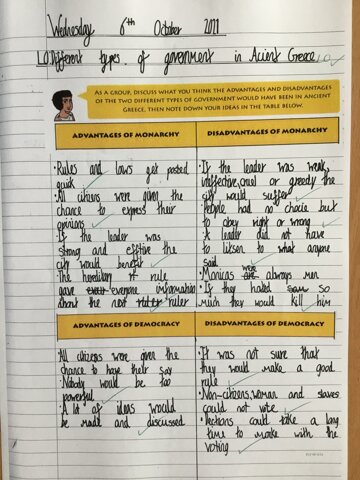 Wednesday 6th October 2021
L.O Different types of government in Acient Greece
AS A GROUP, DISCUSS WHAT YOU THINK THE ADVANTAGES AND DISADVANTAGES
OF THE TWO DIFFERENT TYPES OF GOVERNMENT WOULD HAVE BEEN IN ANCIENT
GREECE, THEN NOTE DOWN YOUR IDEAS IN THE TABLE BELOW.
ADVANTAGES OF MONARCHY
• Rules and laws get posted
quick
• All citizens were given the
chance to express their
opinions
• If the leader was
strong and effitive the
city would benefit
• The hereditary of rule
gave everyone information
about the next ruler
DISADVANTAGES OF MONARCHY
• If the leader was weak,
ineffective, cruel or greedy the
city would suffer
• People had no chocie but
to obey right or wrong
• A leader did not have
to litsen to what anyone
said
• Monicas were always men
• If they hated so
much they would kill him
ADVANTAGES OF DEMOCRACY
All citizens were given the
chance to have their say
• Nobody would be too
powerful
• A lot of ideas would
be made and discussed
DISADVANTAGES OF DEMOCRACY
• It was not sure that
they would make a good
rule
• Non-citizens, woman and slaves
could not vote
• Iections could take a long
time to make with the
voting